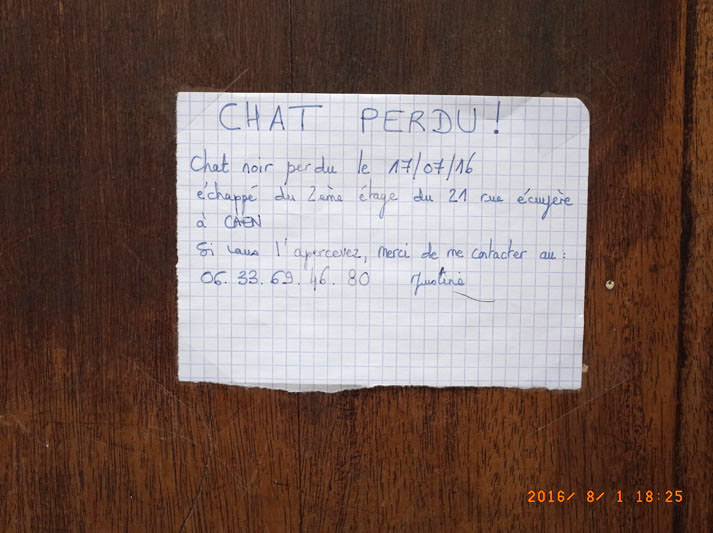 CHAT PERDU!
Chat noir perdu le 17/07/16
échappé du 2ème étage du 21 rue écuyère
à CAEN
Si vous l'apercevez, merci de me contacter au :
06.33.69.46.80 Justine
2016/ 8/ 1 18:25